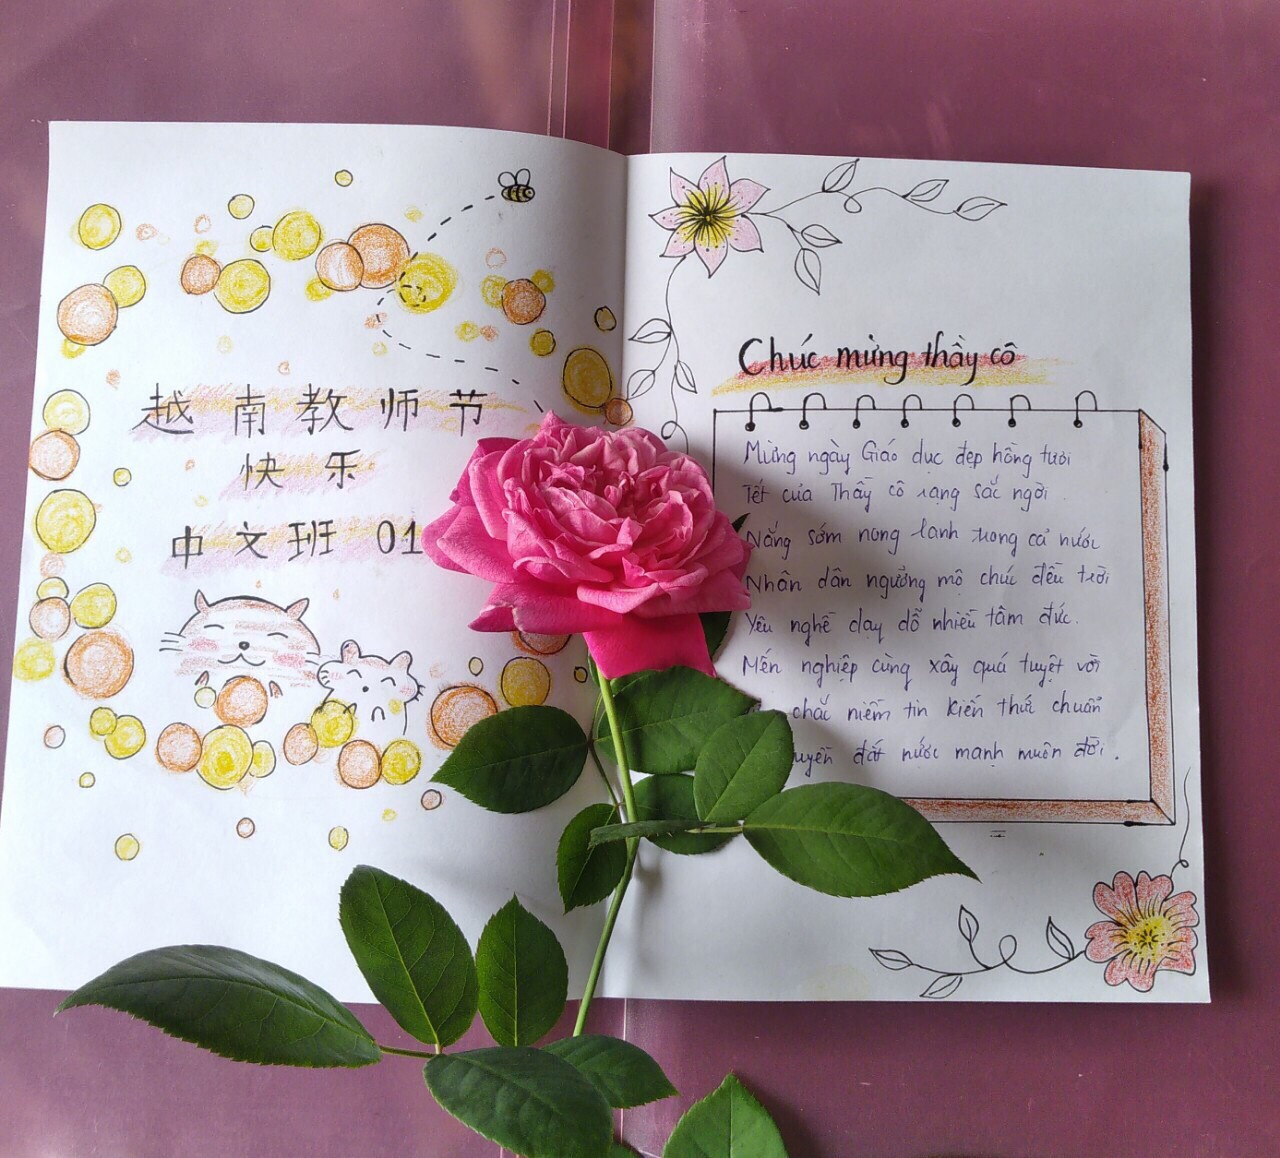 越南教师节
快乐
中文班 01
Chúc mừng thầy cô
Mừng ngày Giáo dục đẹp hồng tươi
Tết của Thầy cô rạng sắc ngời.
Nắng sớm nong lanh trong cả nước
Nhân dân ngưỡng mộ chúc đều trời
Yêu nghề dạy dỗ nhiều tâm đức.
Mến nghiệp cùng xây quá tuyệt vời
chắc niềm tin kiến thức chuẩn
đất nước mạnh muôn đời.